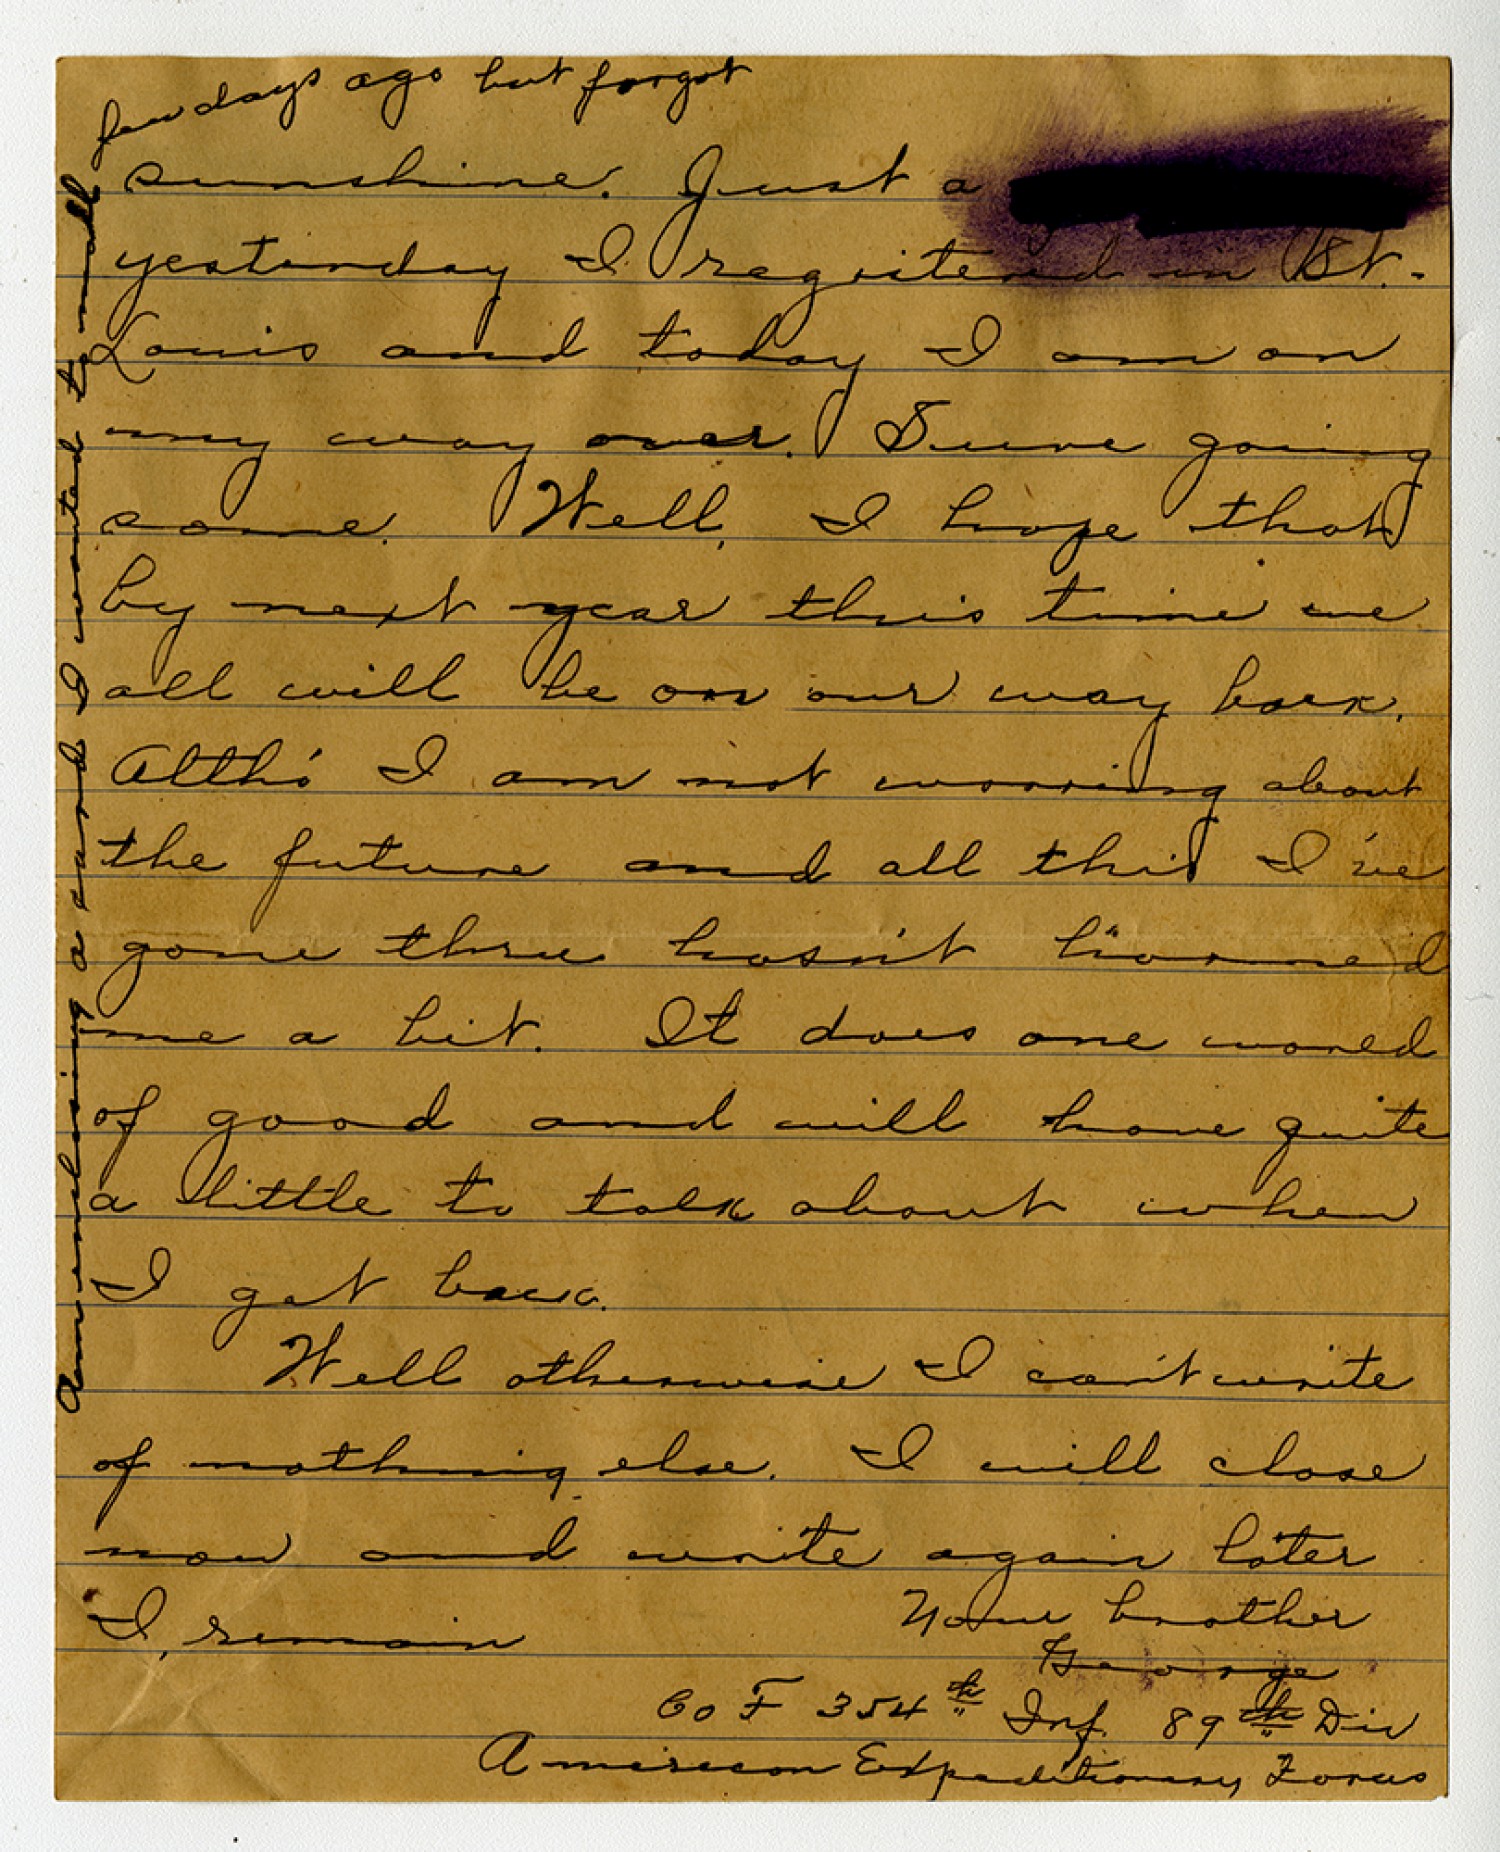 sunshine. Just a
yesterday I registered in St.
Louis and today I am on
my way over. Sure going
some. Well, I hope that
by next year this time we
all will be on our way back.
Altho' I am not worring about
the future and all this I've
gone thru hasn't harmed
me a bit. It does one wored
of good and will have quite
a little to talk about when
I get back.
Well otherwise I can't write
of nothing else. I will close
now and write again later
I, remain
Your brother
George
Co F 354th Inf. 89th Div
American Expeditionary Forces
Am enclosing a card I wanted to mail
few days ago but forgot